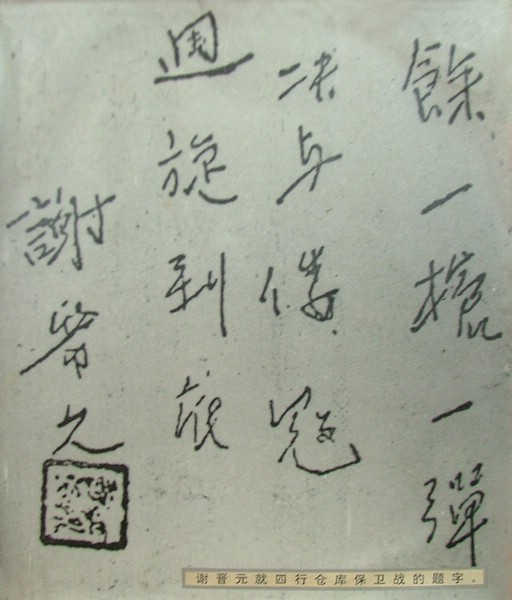 餘一槍一彈
决与倭寇
週旋到底
謝晉元
谢晋元就四行仓库保卫战的题字。